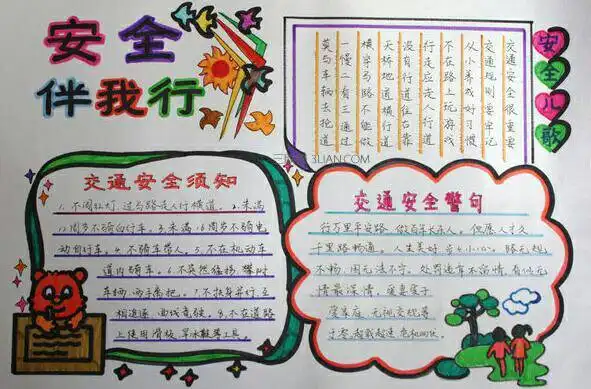 安全
伴我行
安全儿歌
交通安全很重要
交通规则要牢记
从小养成好习惯
不在路上玩游戏
行走应走人行道
没有行道往右靠
天桥地道横行道
横穿马路不能做
一慢二看三通过
莫与车辆去抢道
3LIAN.COM
交通安全须知
1.不闯红灯,过马路走人行横道。2.未满
12周岁不骑自行车。3.未满16周岁不骑电
动自行车。4.不骑车带人。5.不在机动车
道内骑车。6.不突然猛拐、攀扶
车辆、两手离把。7.不扶身并行、互
相追逐、曲线竞驶。8.不在道路
上使用滑板、旱冰鞋等工具。
交通安全警句
行万里平安路,做百年长乐人。但愿人长久
千里路畅通。人生美好 步步小心。路无规
不畅,国无法不宁。处罚违章不留情,看似无
情最深情。
爱家庭,无视交规等
于零,超载超速 危机四伏。